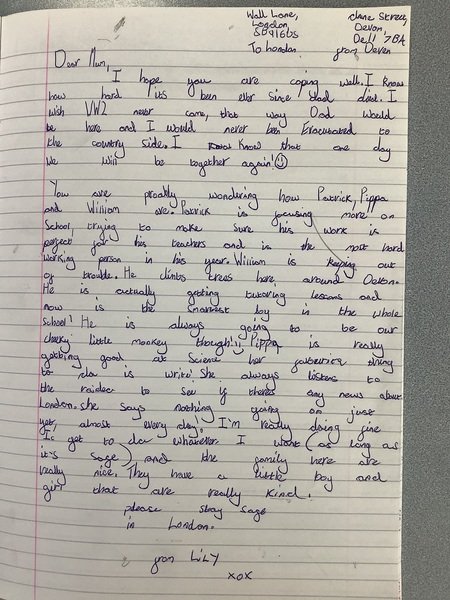 Wall Lane, Jane Street,
London, Devon,
SD916US De11 7BA
To London from Devon
Dear Mum,
I hope you are coping well. I know
how hard it's been ever since dad died. I
wish WW2 never came, that way Dad would
be here and I would never been Evacuated to
the country side. I know that one day
We will be together again!
You are proably wondering how Patrick, Pippa
and William are. Patrick is focusing more on
School, trying to make sure his work is
perfect for his teachers and is the most hard
working person in his year. William is keeping out
of trouble. He climbs trees here around Devon.
He is actually getting tutoring lessons and
now is the smartest boy in the whole
school! He is always going to be our
cheeky little monkey though!! Pippa is really
getting good at Science her thing
to do is write! She always listens to
the to see if theres any news about
London. she says nothing going on just
yet, almost every day! I'm really doing fine
I get to do whatever I want (as long as
it's safe) and the family here are
really nice. They have a little boy and
girl that are really kind.
please stay safe
in London.
from LiLY
xox